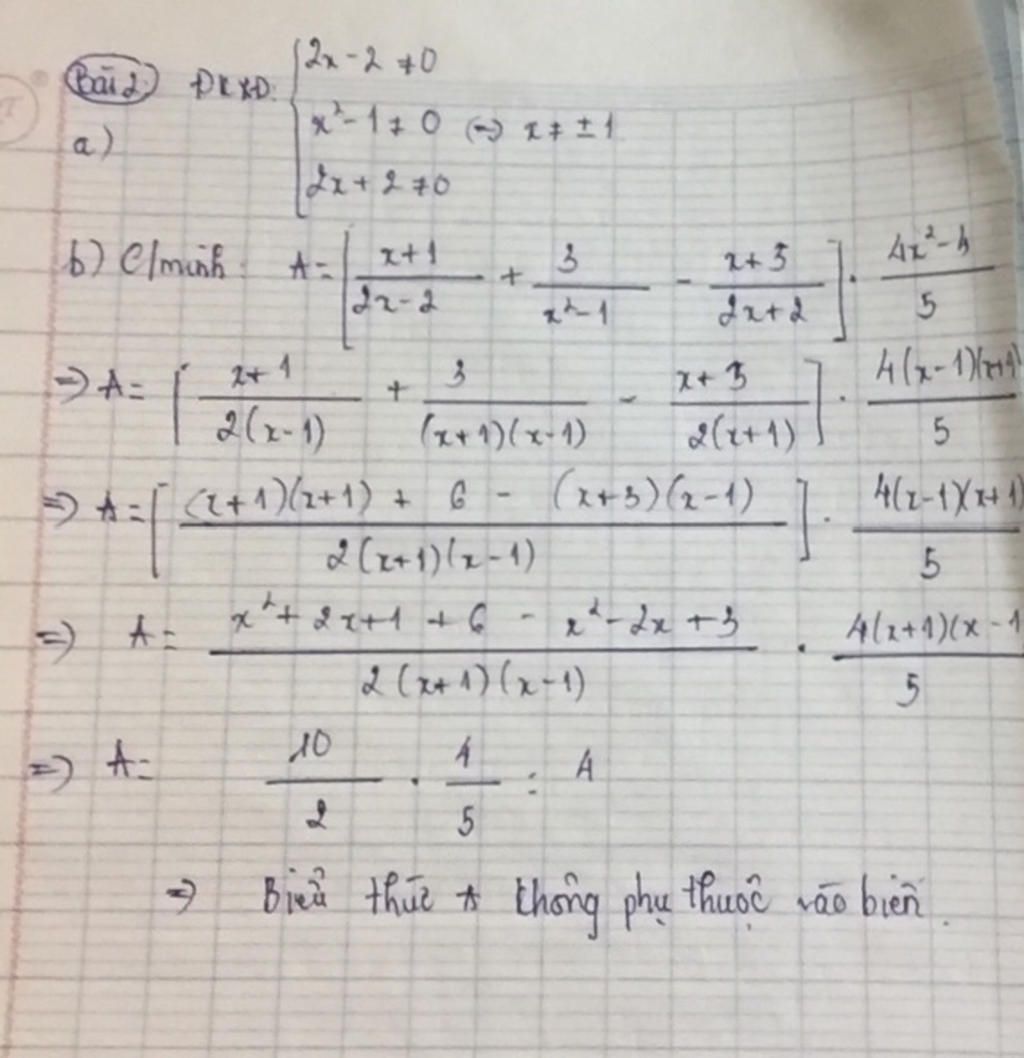 Bài 2. ĐKXĐ: { 2x - 2 ≠ 0
a) x² - 1 ≠ 0 (=) x ≠ ± 1
2x + 2 ≠ 0
b) C/minh: A = [ (x+1)/(2x-2) + 3/(x²-1) - (x+3)/(2x+2) ] . (4x²-4)/5
=) A = [ (x+1)/(2(x-1)) + 3/((x+1)(x-1)) - (x+3)/(2(x+1)) ] . 4(x-1)(x+1)/5
=) A = [ ((x+1)(x+1) + 6 - (x+3)(x-1))/(2(x+1)(x-1)) ] . 4(x-1)(x+1)/5
=) A = (x² + 2x+1 + 6 - x² - 2x + 3)/(2(x+1)(x-1)) . 4(x+1)(x-1/5
=) A = 10/2 . 4/5 = 4
=) Biểu thức A không phụ thuộc vào biến.